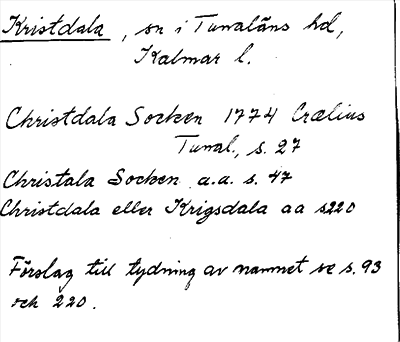 Kristdala, sn i Tunaläns hd,
Kalmar l.
Christdala Socken 1774 Crælius
Tunal., s. 27
Christala Socken a.a. s. 47
Christdala eller Krigsdala aa s220
Förslag till tydning av namnet se s. 93
och 220.